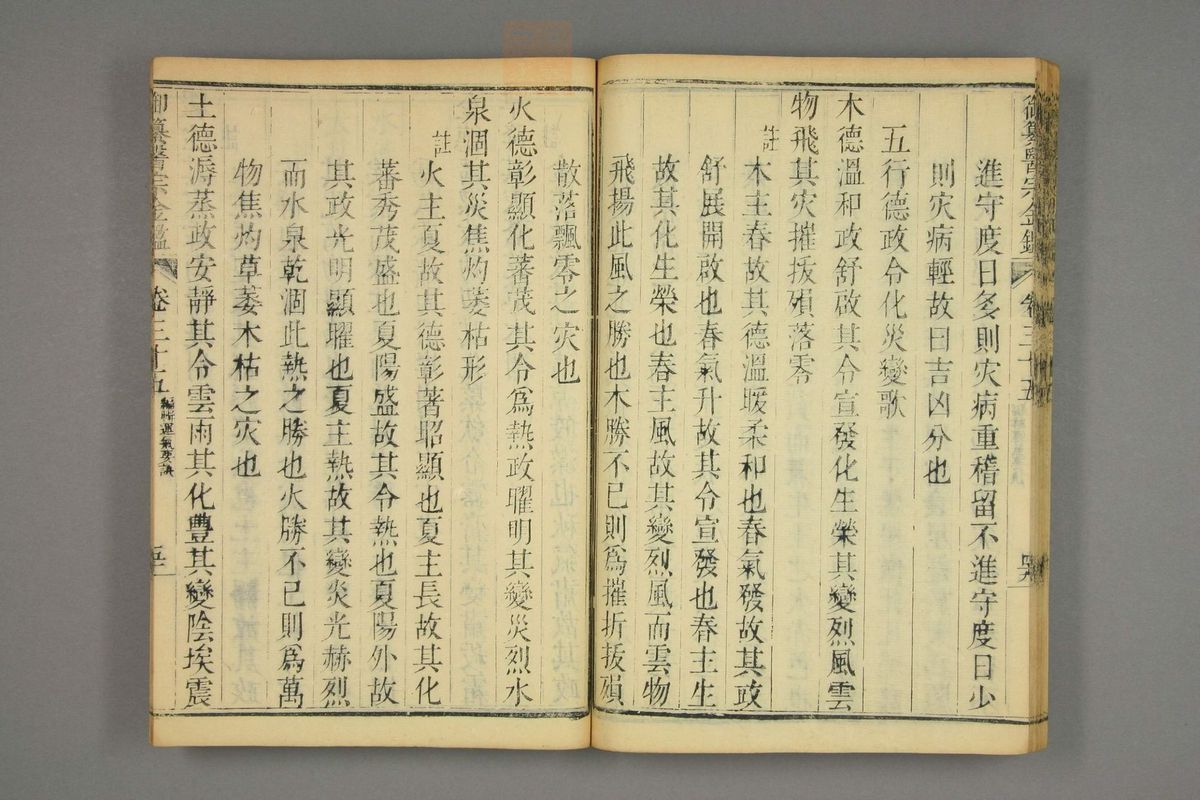 御纂醫宗金鑑 卷三十五
進守度日多則灾病重稽留不進守度日少
則灾病輕故曰吉凶分也
五行德政令化災變歌
木德溫和政舒啟其令宣發化生榮其變烈風雲
物飛其灾摧拔殞落零
註
木主春故其德溫暖柔和也春氣發故其政
舒展開啟也春氣升故其令宣發也春主生
故其化生榮也春主風故其變烈風而雲物
飛揚此風之勝也木勝不已則為摧折拔殞
散落飄零之灾也
火德彰顯化蕃茂其令為熱政曜明其變災烈水
泉涸其災焦灼萎枯形
註
火主夏故其德彰著昭顯也夏主長故其化
蕃秀茂盛也夏陽盛故其令熱也夏陽外故
其政光明顯曜也夏主熱故其變炎光赫烈
而水泉乾涸此熱之勝也火勝不已則為萬
物焦灼草萎木枯之灾也
土德溽蒸政安靜其令雲雨其化豐其變陰埃震
御纂醫宗金鑑 卷三十五 編輯運氣要訣